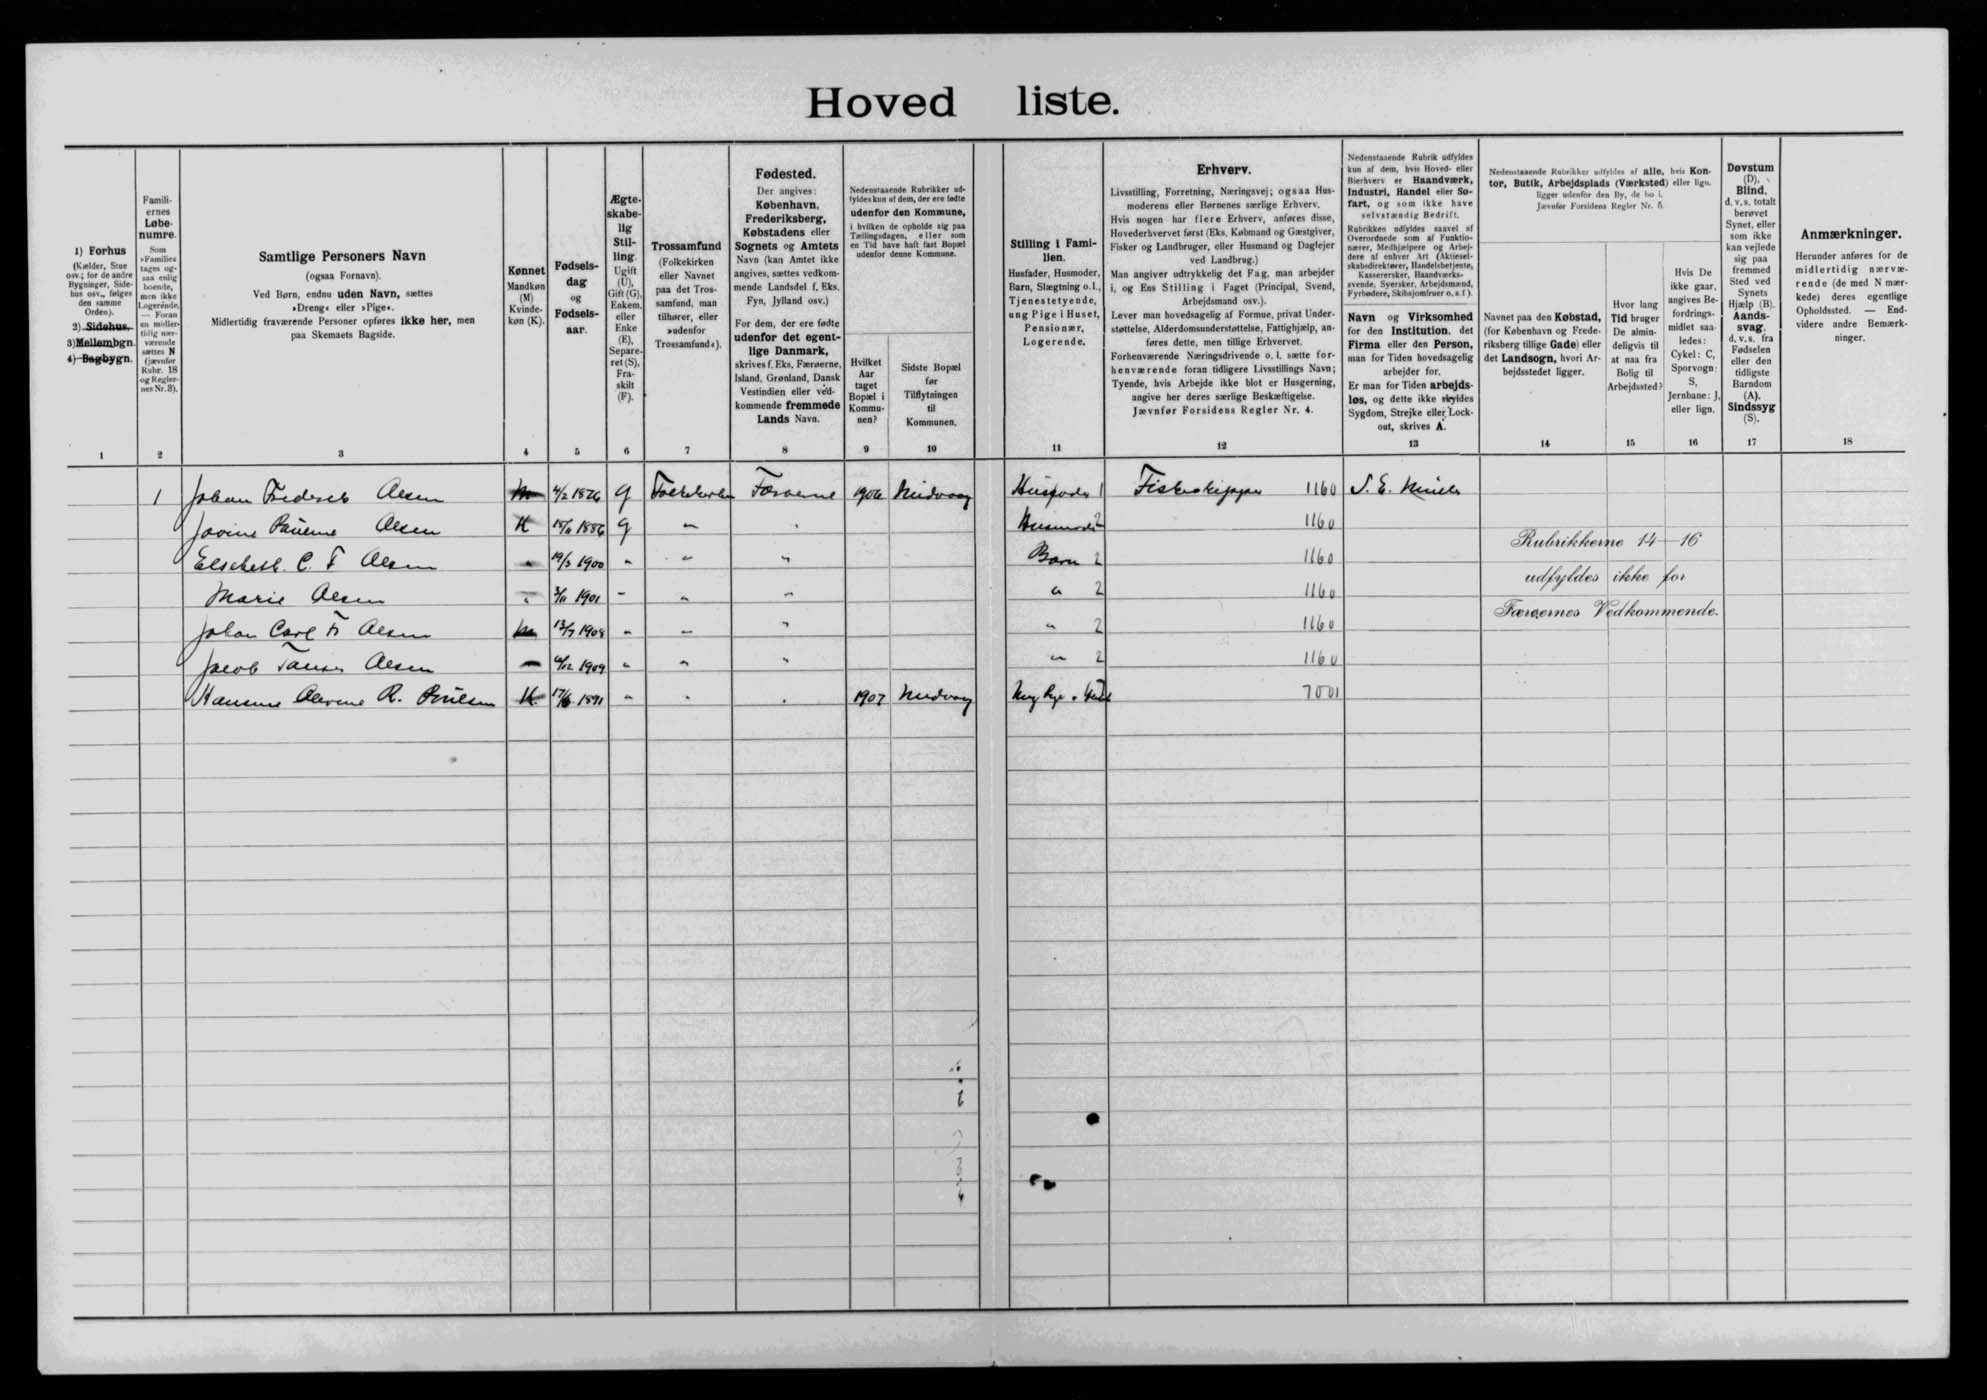 Hoved liste.
1) Forhus
(Kælder, Stue
osv.; for de andre
Bygninger, Side-
hus osv., følges
den samme
Orden).
2) Sidehus,
3) Mellembgn.
4) Bagbygn.
1
Famili-
ernes
Løbe-
numre.
Som
»Familie«
tages og-
saa enlig
boende,
men ikke
Logerende.
— Foran
en midler-
tidig nær-
værende
sættes N
(jævnfør
Rubr. 18
og Regler-
nes Nr. 3).
2
Samtlige Personers Navn
(ogsaa Fornavn).
Ved Børn, endnu uden Navn, sættes
»Dreng« eller »Pige«.
Midlertidig fraværende Personer opføres ikke her, men
paa Skemaets Bagside.
3
Kønnet
Mandkøn
(M)
Kvinde-
køn (K).
4
Fødsels-
dag
og
Fødsels-
aar.
5
Ægte-
skabe-
lig
Stil-
ling.
Ugift
(U),
Gift (G),
Enkem.
eller
Enke
(E),
Separe-
ret (S),
Fra-
skilt
(F).
6
Trossamfund
(Folkekirken
eller Navnet
paa det Tros-
samfund, man
tilhører, eller
»udenfor
Trossamfund«).
7
Fødested.
Der angives:
København,
Frederiksberg,
Købstadens eller
Sognets og Amtets
Navn (kan Amtet ikke
angives, sættes vedkom-
mende Landsdel f. Eks.
Fyn, Jylland osv.)
For dem, der ere fødte
udenfor det egent-
lige Danmark,
skrives f. Eks. Færøerne,
Island, Grønland, Dansk
Vestindien eller ved-
kommende fremmede
Lands Navn.
8
Nedenstaaende Rubrikker ud-
fyldes kun af dem, der ere fødte
udenfor den Kommune,
i hvilken de opholde sig paa
Tællingsdagen, eller som
en Tid have haft fast Bopæl
udenfor denne Kommune.
Hvilket
Aar
taget
Bopæl i
Kommu-
nen?
9
Sidste Bopæl
før
Tilflytningen
til
Kommunen.
10
Stilling i Fami-
lien.
Husfader, Husmoder,
Barn, Slægtning o. l.,
Tjenestetyende,
ung Pige i Huset,
Pensionær,
Logerende.
11
Erhverv.
Livsstilling, Forretning, Næringsvej; ogsaa Hus-
moderens eller Børnenes særlige Erhverv.
Hvis nogen har flere Erhverv, anføres disse,
Hovederhvervet først (Eks. Købmand og Gæstgiver,
Fisker og Landbruger, eller Husmand og Daglejer
ved Landbrug.)
Man angiver udtrykkelig det Fag, man arbejder
i, og Ens Stilling i Faget (Principal, Svend,
Arbejdsmand osv.).
Lever man hovedsagelig af Formue, privat Under-
støttelse, Alderdomsunderstøttelse, Fattighjælp, an-
føres dette, men tillige Erhvervet.
Forhenværende Næringsdrivende o. l. sætte for-
henværende foran tidligere Livsstillings Navn;
Tyende, hvis Arbejde ikke blot er Husgerning,
angive her deres særlige Beskæftigelse.
Jævnfør Forsidens Regler Nr. 4.
12
Nedenstaaende Rubrik udfyldes
kun af dem, hvis Hoved- eller
Bierhverv er Haandværk,
Industri, Handel eller Sø-
fart, og som ikke have
selvstændig Bedrift.
Rubrikken udfyldes saavel af
Overordnede som af Funktio-
nærer, Medhjælpere og Arbej-
dere af enhver Art (Aktiesel-
skabsdirektører, Handelsbetjente,
Kassererersker, Haandværks-
svende, Syersker, Arbejdsmænd,
Fyrbødere, Skibsjomfruer o. s. f.).
Navn og Virksomhed
for den Institution, det
Firma eller den Person,
man for Tiden hovedsagelig
arbejder for.
Er man for Tiden arbejds-
løs, og dette ikke skyldes
Sygdom, Strejke eller Lock-
out, skrives A.
13
Nedenstaaende Rubrikker udfyldes af alle, hvis Kon-
tor, Butik, Arbejdsplads (Værksted) eller lign.
ligger udenfor den By, de bo i.
Jævnfør Forsidens Regler Nr. 5.
Navnet paa den Købstad,
(for København og Frede-
riksberg tillige Gade) eller
det Landsogn, hvori Ar-
bejdsstedet ligger.
14
Hvor lang
Tid bruger
De almin-
deligvis til
at naa fra
Bolig til
Arbejdssted?
15
Hvis De
ikke gaar,
angives Be-
fordrings-
midlet saa-
ledes:
Cykel: C,
Sporvogn:
S,
Jernbane: J,
eller lign.
16
Døvstum
(D).
Blind,
d. v. s. totalt
berøvet
Synet, eller
som ikke
kan vejlede
sig paa
fremmed
Sted ved
Synets
Hjælp (B).
Aands-
svag,
d. v. s. fra
Fødselen
eller den
tidligste
Barndom
(A).
Sindssyg
(S).
17
Anmærkninger.
Herunder anføres for de
midlertidig nærvæ-
rende (de med N mær-
kede) deres egentlige
Opholdssted. — End-
videre andre Bemærk-
ninger.
18
1 Johan Frederik Olsen M 4/2 1876 G Folkekirken Færøerne 1906 Midvaag Husfader 1 Fiskeskipper 1160
Olsen K 1886 G " " Husmoder 2 1160
Elsebeth C. F Olsen " 19/3 1900 " " " Barn 2 1160
Marie Olsen " 1901 " " " " 2 1160
Johan Carl F Olsen M 13/7 1908 " " " " 2 1160
Jacob Olsen " 1909 " " " " 2 1160
Hansine R. Poulsen K 1891 " " " 1907 Midvaag Ung Pige i Huset 7001
Rubrikkerne 14—16
udfyldes ikke for
Færøernes Vedkommende.